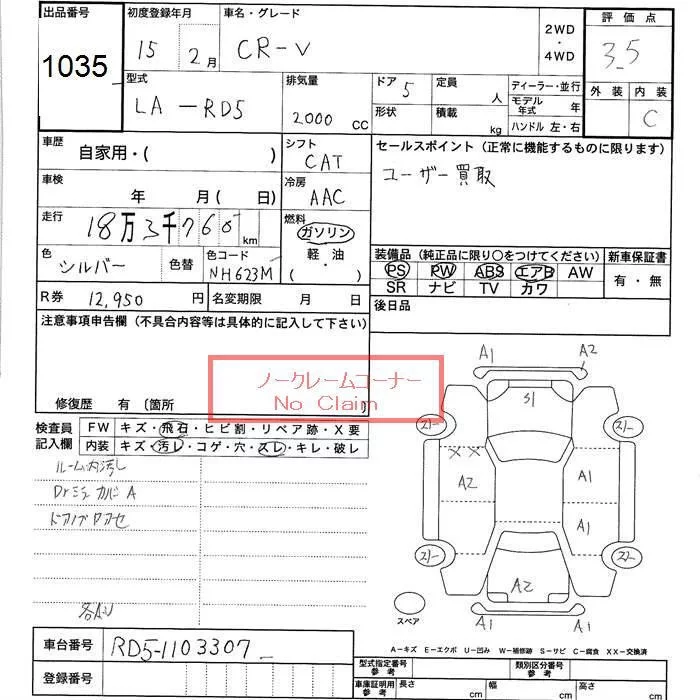 出品番号
1035
初度登録年月
15 2月
車名・グレード
CR-V
2WD
・
4WD
評価点
3.5
外装 内装
C
型式
LA-RD5
排気量
2000 CC
ドア 5
形状
定員 人
積載 kg
ディーラー・並行
モデル年式 年
ハンドル 左・右
車歴
自家用・( )
シフト
CAT
セールスポイント(正常に機能するものに限ります)
ユーザー買取
車検
年 月( 日)
冷房
AAC
走行
18万3千760 km
燃料
ガソリン
軽・油
( ・ )
色
シルバー
色替
色コード
NH623M
装備品(純正品に限り○をつけてください)
PS PW ABS エアB AW
SR ナビ TV カワ
新車保証書
有・無
R券 12,950 円
名変期限 月 日
後日品
注意事項申告欄(不具合内容等は具体的に記入して下さい)
ノークレームコーナー
No Claim
修復歴 有〔箇所
検査員
記入欄
FW キズ・飛石・ヒビ割・リペア跡・X要
内装 キズ・汚レ・コゲ・穴・スレ・キレ・破レ
ルーム内汚し
Drミラーカバー A
A1 A2
S1
XX
A2 A1
A1
A2
A1 A1
スペア
A-キズ E-エクボ U-凹み W-補修跡 S-サビ C-腐食 XX-交換済
車台番号
RD5-1103307
登録番号
型式指定番号
参考
類別区分番号
参考
車庫証明用
参考
長さ cm
幅 cm
高さ cm